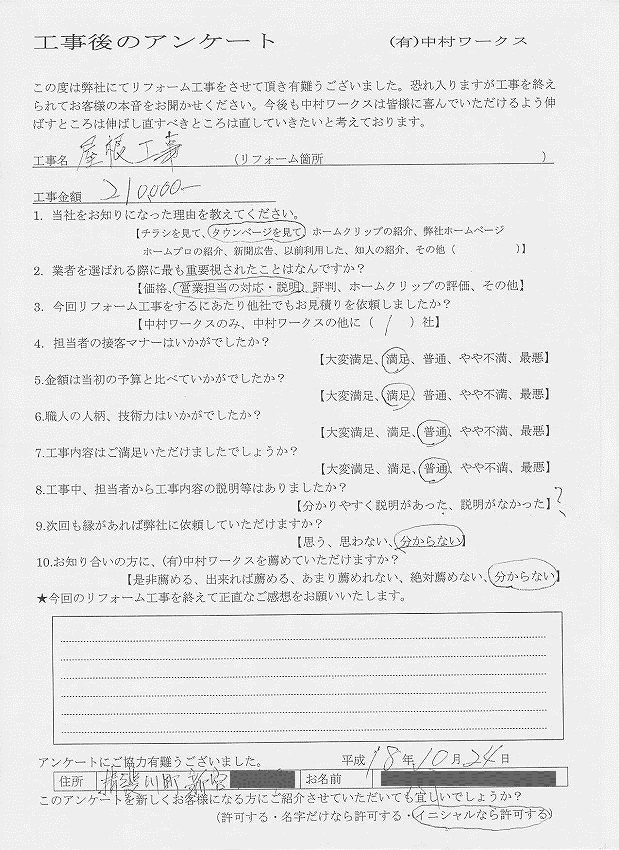 工事後のアンケート (有)中村ワークス
この度は弊社にてリフォーム工事をさせて頂き有難うございました。恐れ入りますが工事を終え
られてお客様の本音をお聞かせください。今後も中村ワークスは皆様に喜んでいただけるよう伸
ばすところは伸ばし直すべきところは直していきたいと考えております。
工事名 屋根工事 (リフォーム箇所 )
工事金額 210,000-
1. 当社をお知りになった理由を教えてください。
【チラシを見て、タウンページを見て、ホームクリップの紹介、弊社ホームページ
ホームプロの紹介、新聞広告、以前利用した、知人の紹介、その他（ ）】
2. 業者を選ばれる際に最も重要視されたことはなんですか？
【価格、営業担当の対応・説明、評判、ホームクリップの評価、その他】
3. 今回リフォーム工事をするにあたり他社でもお見積りを依頼しましたか？
【中村ワークスのみ、中村ワークスの他に（ 1 ）社】
4. 担当者の接客マナーはいかがでしたか？
【大変満足、満足、普通、やや不満、最悪】
5.金額は当初の予算と比べていかがでしたか？
【大変満足、満足、普通、やや不満、最悪】
6.職人の人柄、技術力はいかがでしたか？
【大変満足、満足、普通、やや不満、最悪】
7.工事内容はご満足いただけましたでしょうか？
【大変満足、満足、普通、やや不満、最悪】
8.工事中、担当者から工事内容の説明等はありましたか？
【分かりやすく説明があった、説明がなかった】?
9.次回も縁があれば弊社に依頼していただけますか？
【思う、思わない、分からない】
10.お知り合いの方に、(有)中村ワークスを薦めていただけますか？
【是非薦める、出来れば薦める、あまり薦めれない、絶対薦めない、分からない】
★今回のリフォーム工事を終えて正直なご感想をお願いいたします。
アンケートにご協力有難うございました。 平成 18 年 10 月 24 日
住所 揖斐川町新宮 お名前
このアンケートを新しくお客様になる方にご紹介させていただいても宜しいでしょうか？
（許可する・名字だけなら許可する・イニシャルなら許可する）